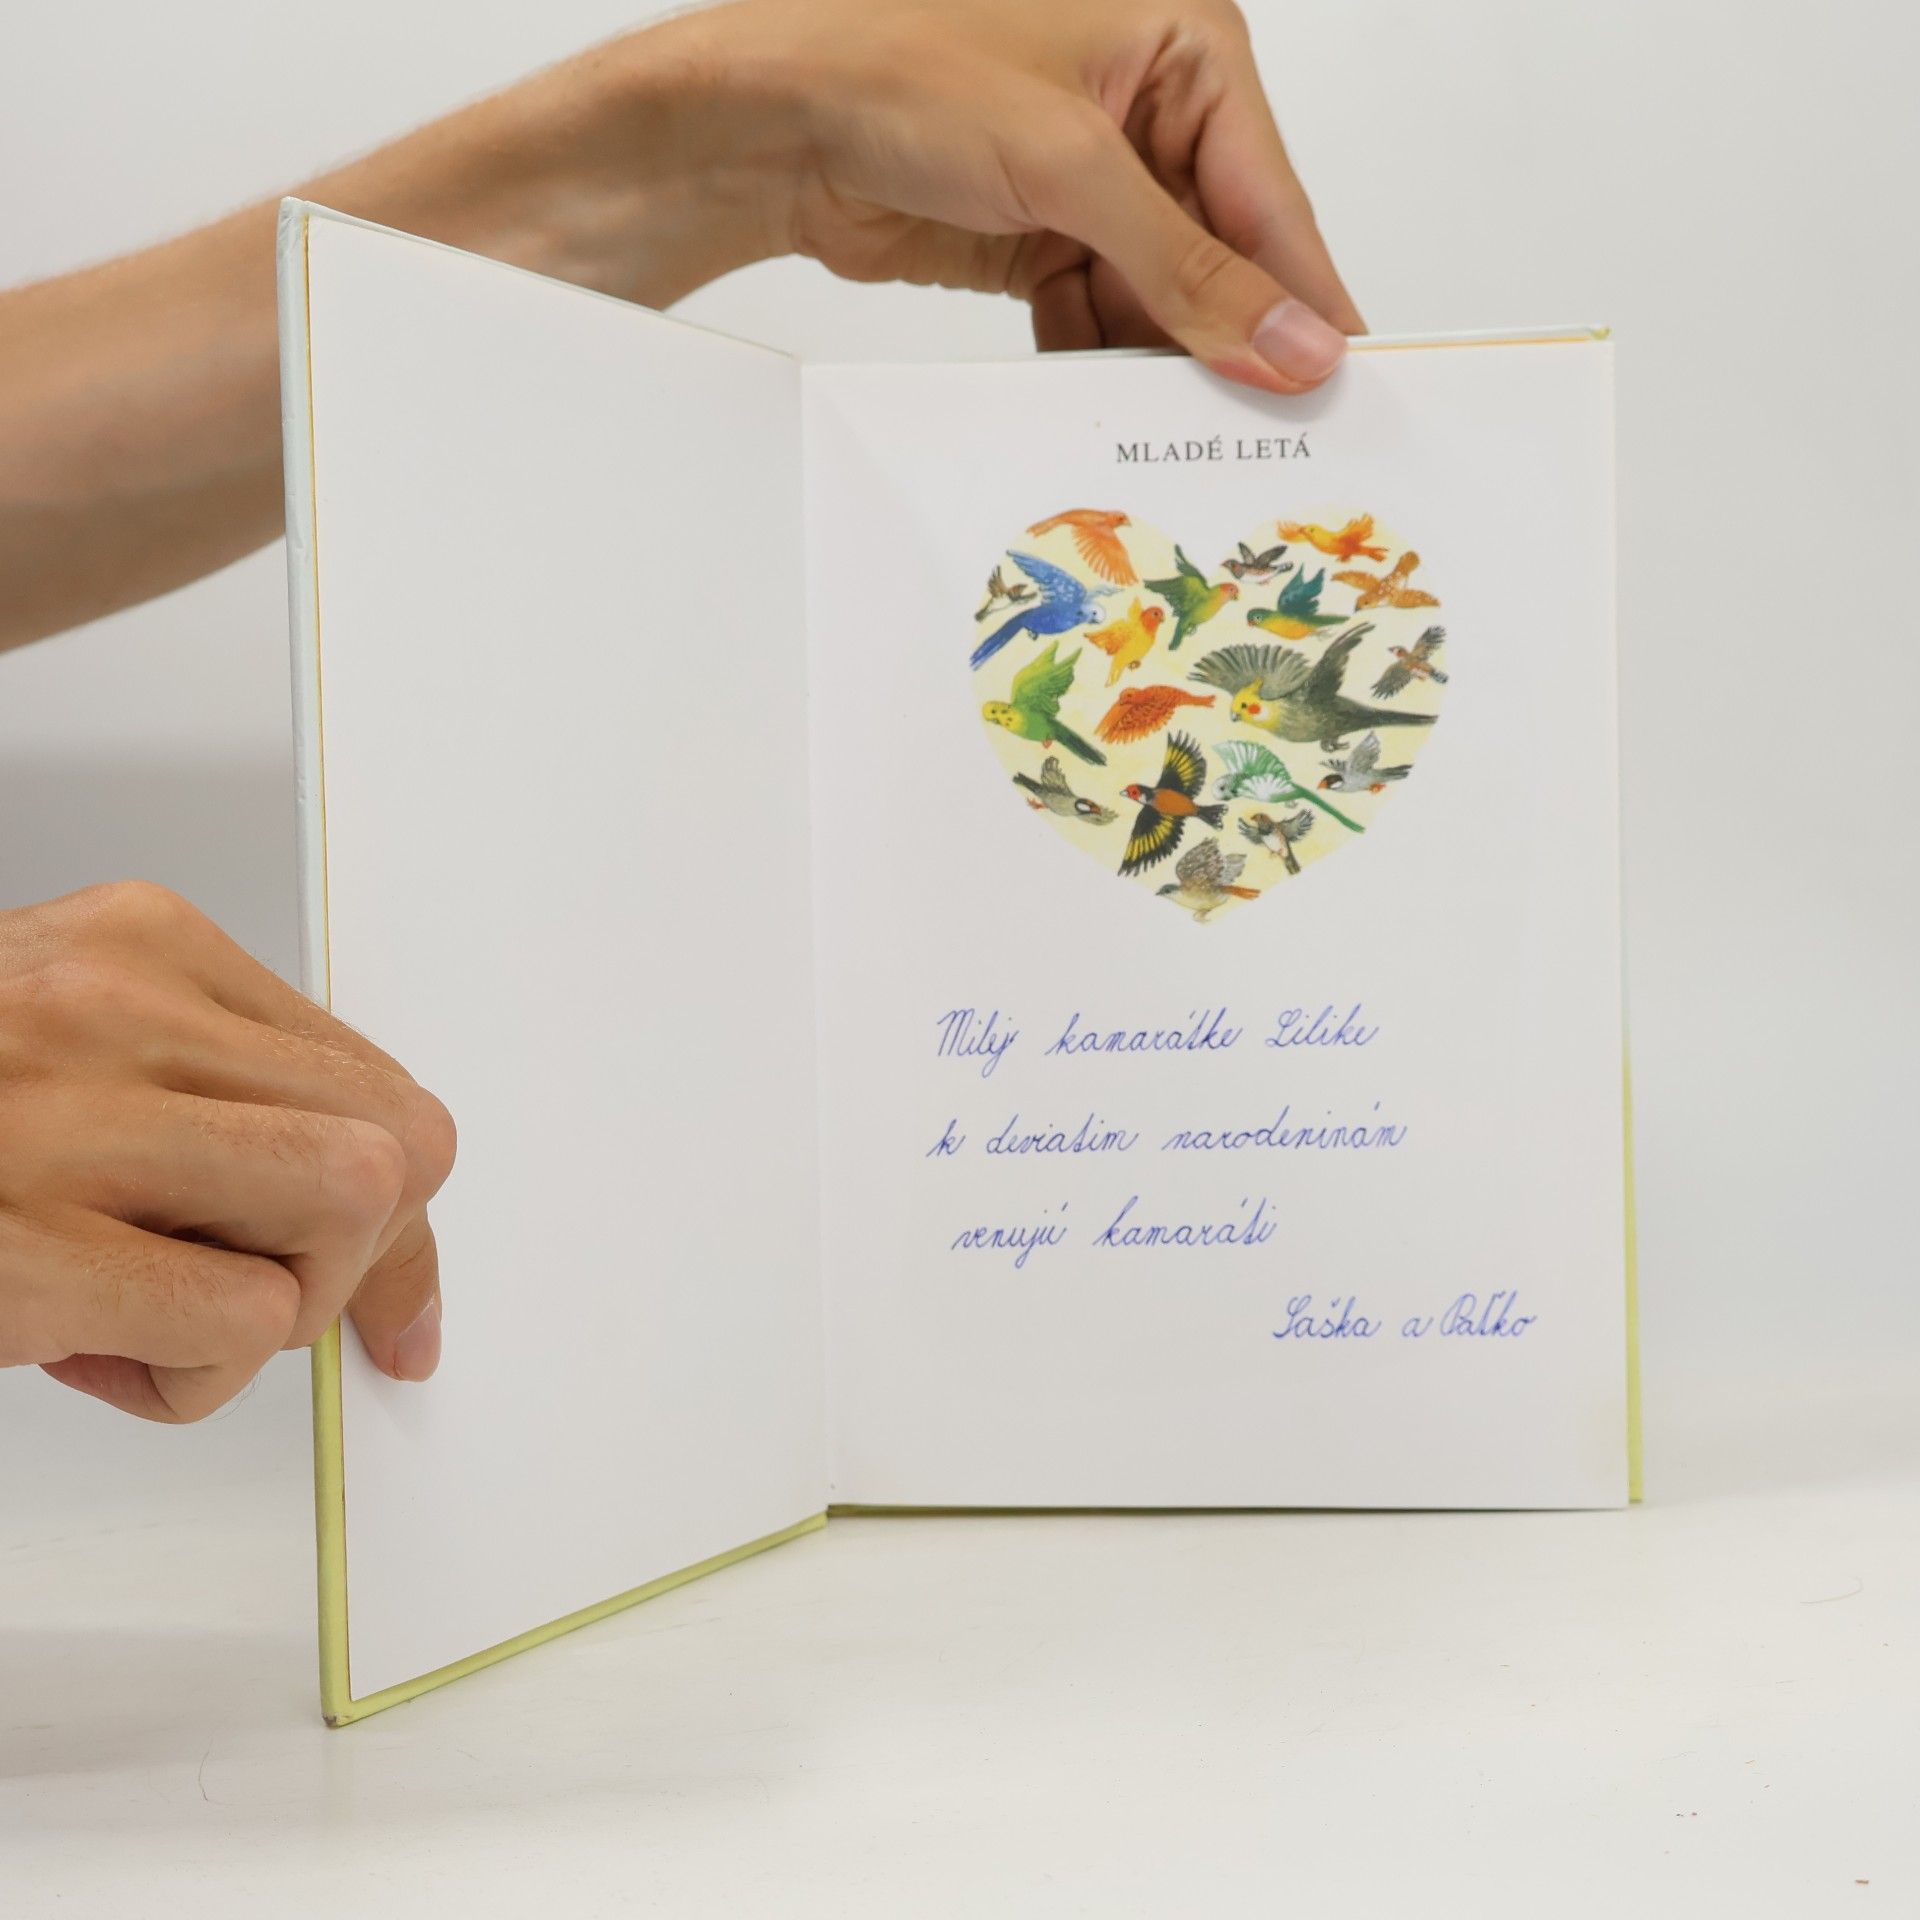 MLADÉ LETÁ
Milej kamarátke Lilike
k deviatim narodeninám
venujú kamaráti
Saška a Paľko